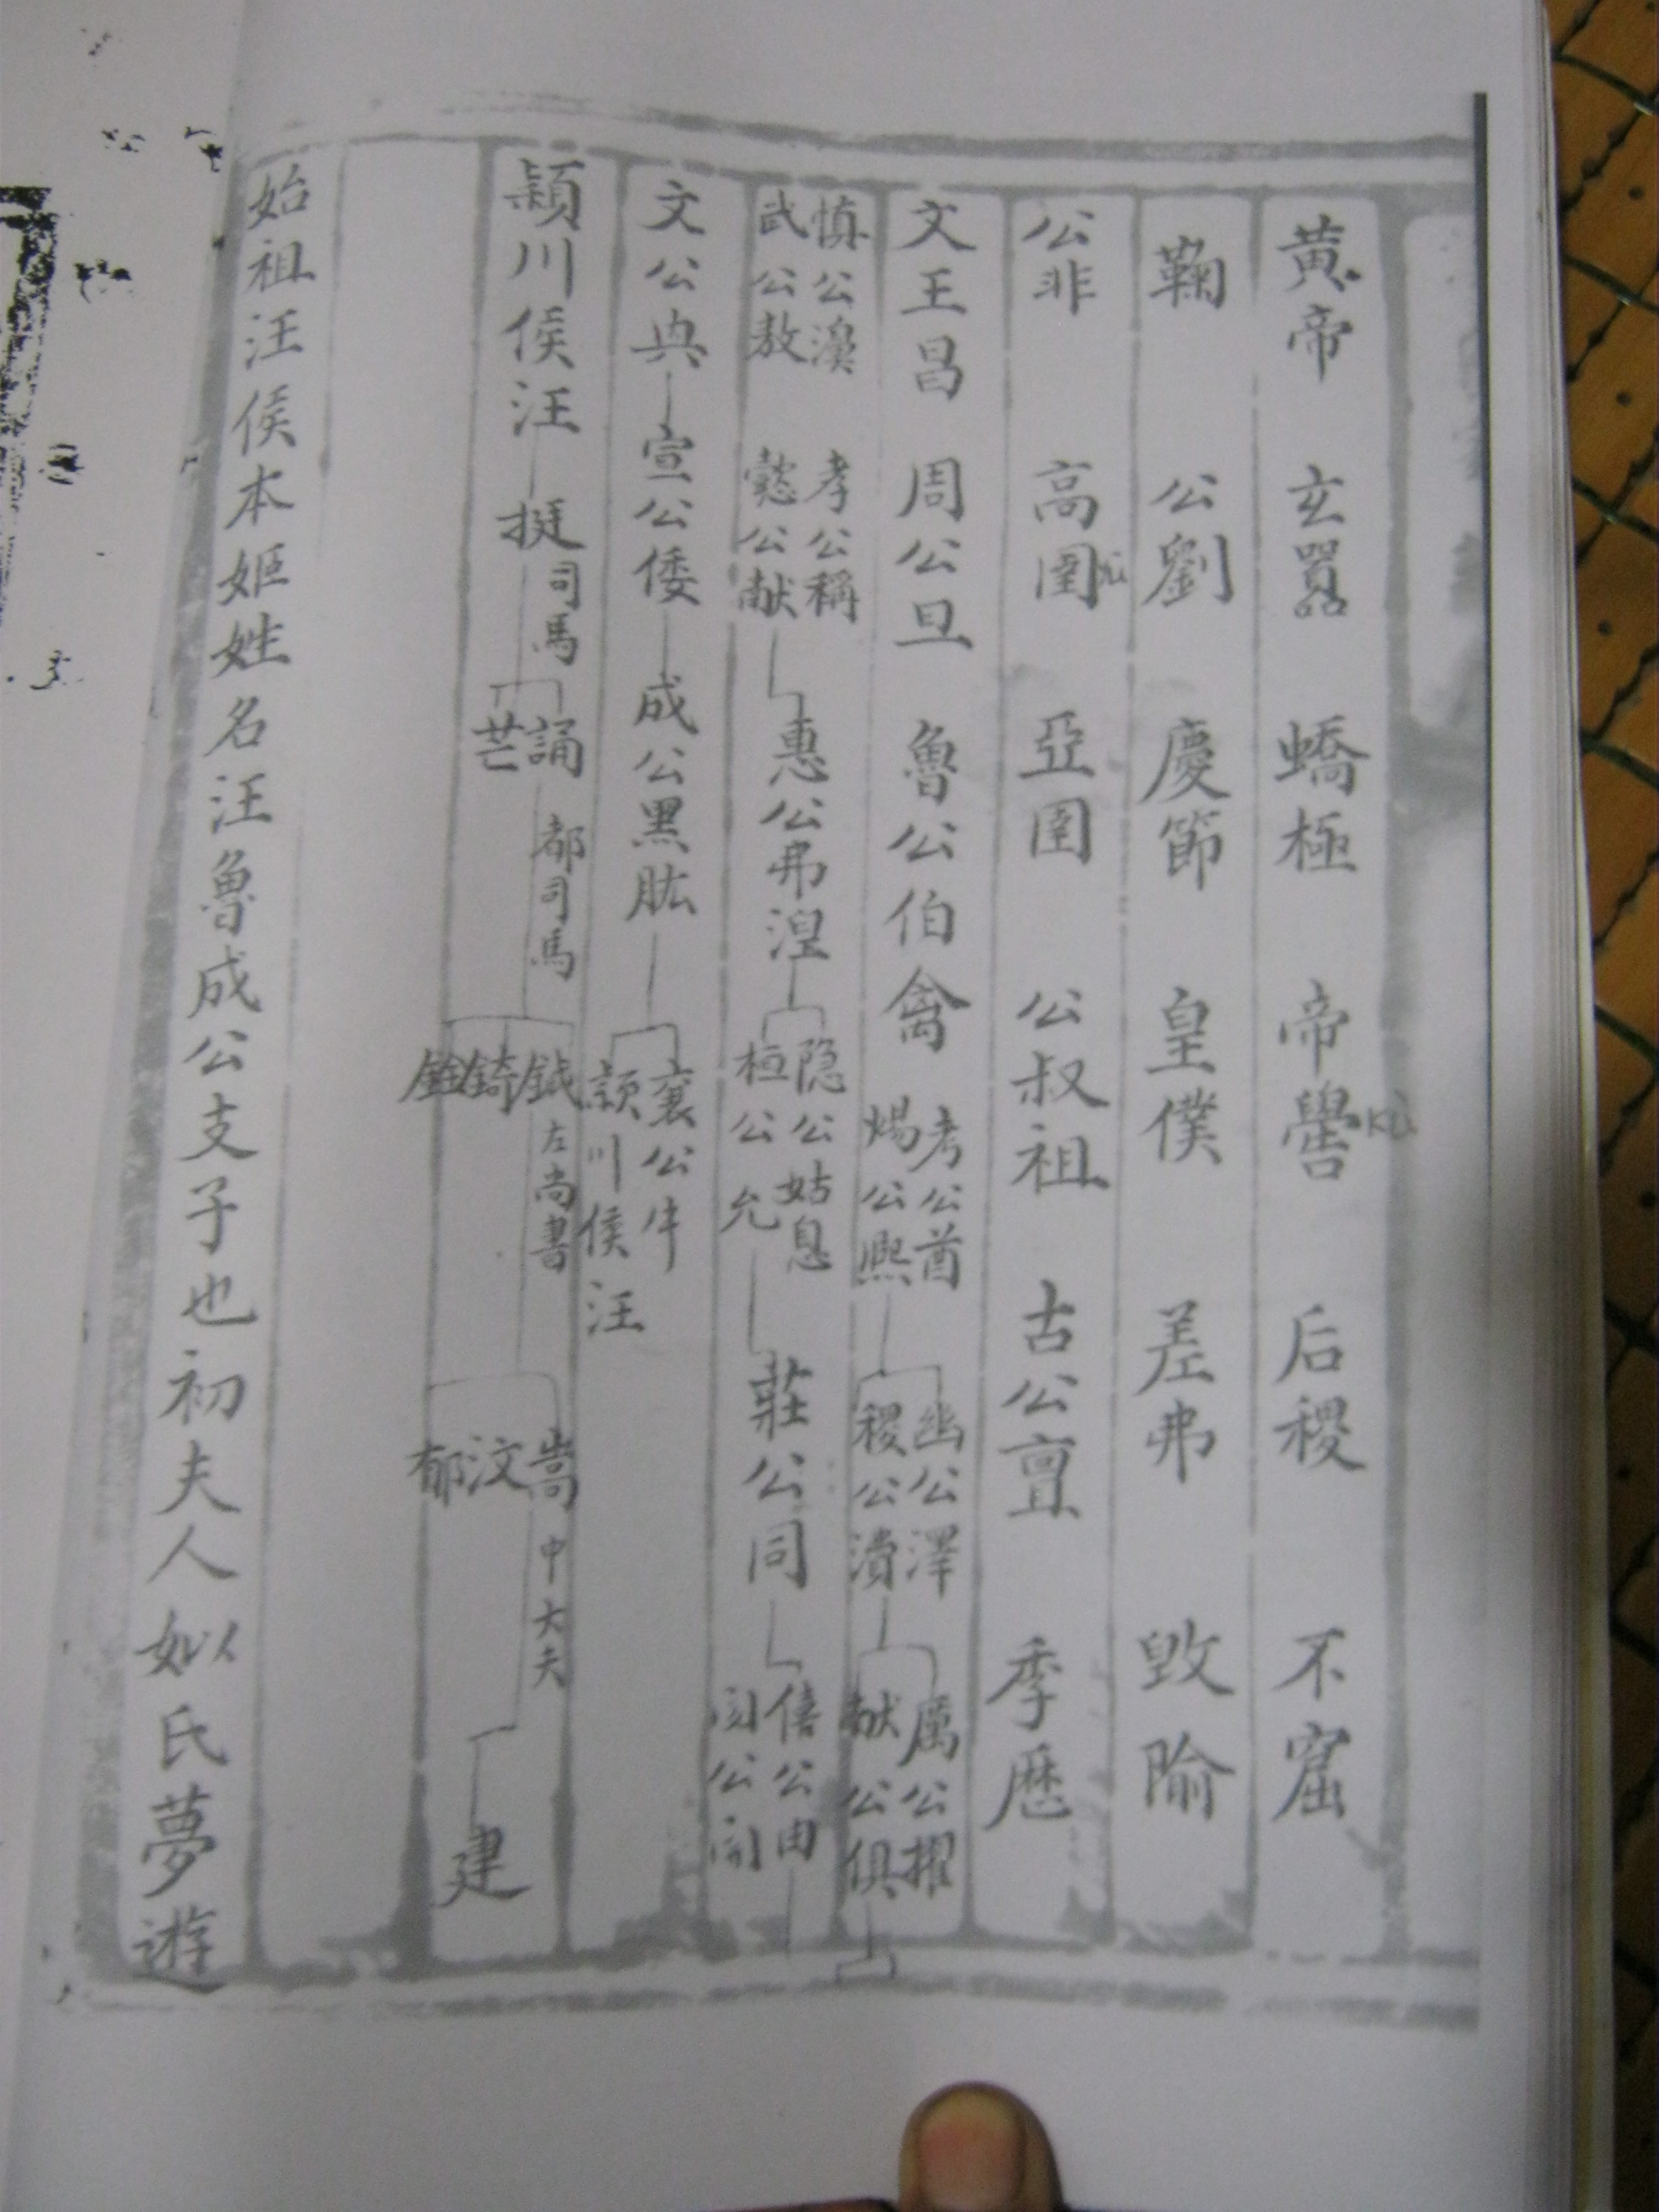 黄帝 玄嚣 蟜極 帝嚳 后稷 不窟
鞠 公劉 慶節 皇僕 差弗 毀隃
公非 高圉 亞圉 公叔祖 古公亶 季歷
文王昌 周公旦 魯公伯禽 考公酋 煬公熙 幽公澤 穆公漬 厲公擢 献公俱
慎公濞 武公敖 孝公稱 懿公献 惠公弗湟 隐公姑息 桓公允 莊公同 僖公由 闵公
文公典 宣公倭 成公黑肱 襄公牛 潁川侯汪
潁川侯汪 挺 司馬 誦 都司馬 芒 鉞 左尚書 錡 銓 嵩 中大夫 汶 郁 建
始祖汪侯本姬姓名汪魯成公支子也初夫人姒氏夢遊